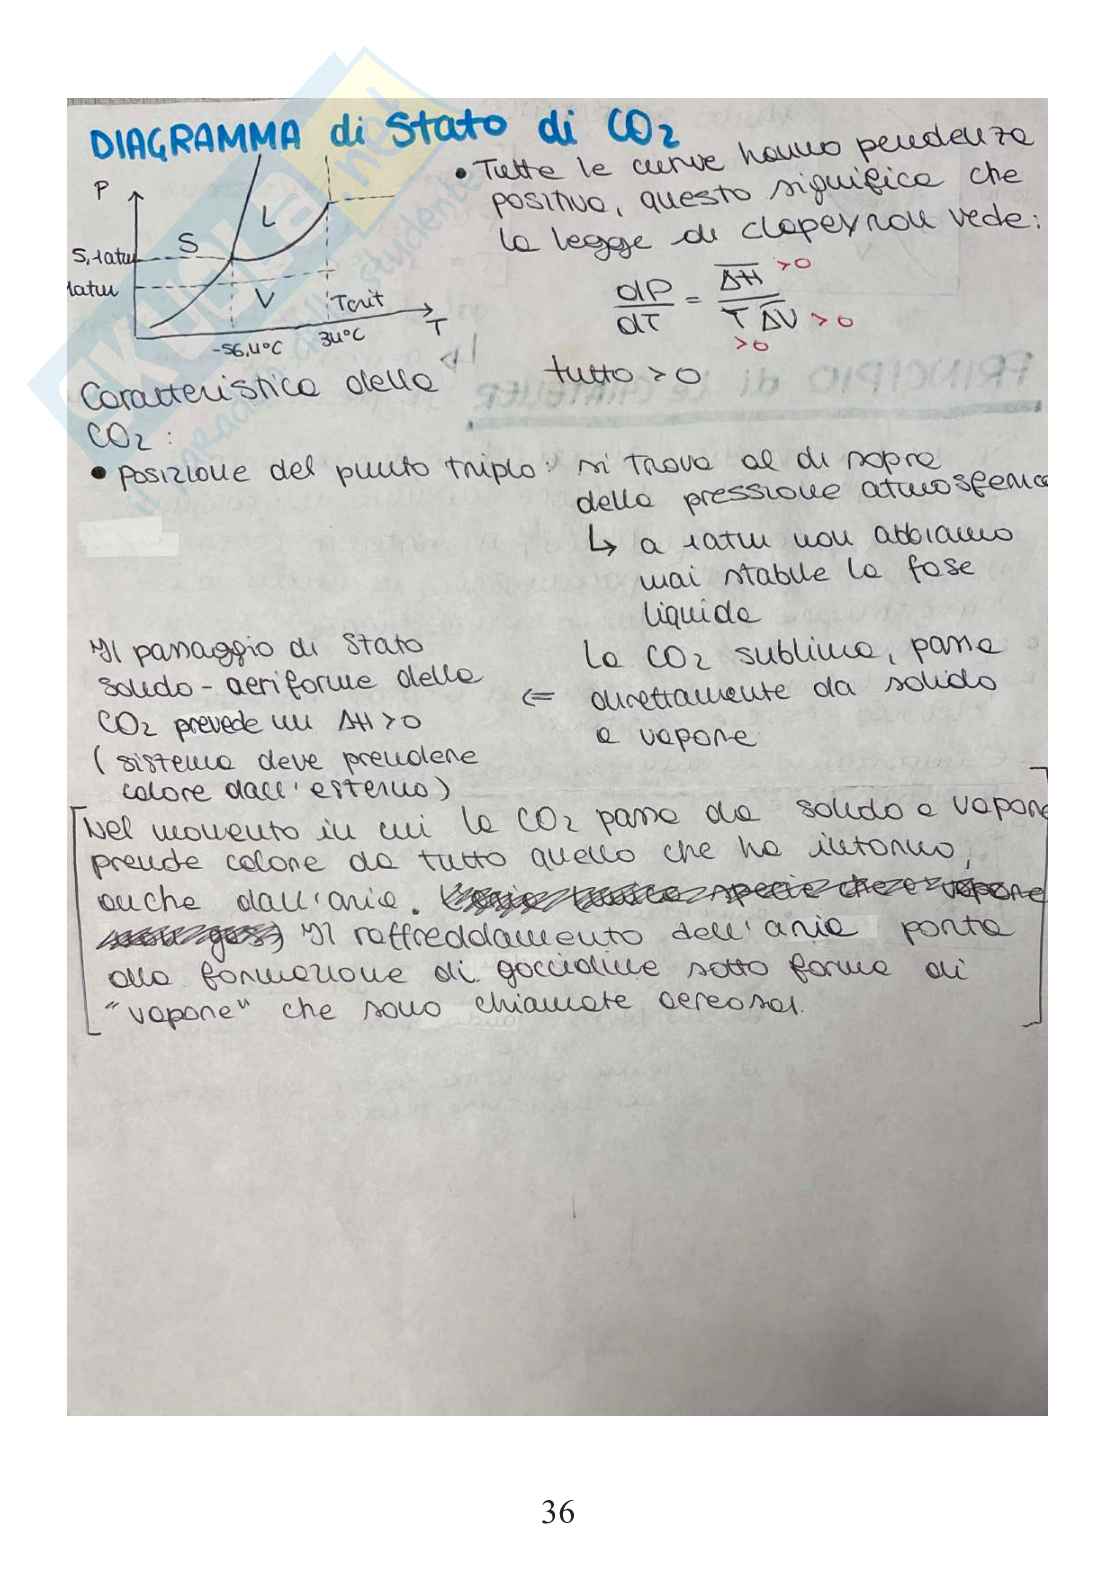 DIAGRAMMA di Stato di CO2
• Tutte le curve hanno pendenza
positiva, questo significa che
la legge di clapeyron vede:
P
S
L
V
5,1atm
1atm
Tcrit
T
-56,4°C
34°C
dP/dT = ΔH >0 / T ΔV >0
>0
tutto >0
Caratteristica della
CO2:
• posizione del punto triplo: si trova al di sopra
della pressione atmosferica
↳ a 1atm non abbiamo
mai stabile la fase
liquida
la CO2 sublima, passa
direttamente da solido
a vapore
⇐
Il passaggio di stato
solido - aeriforme della
CO2 prevede un ΔH>0
(sistema deve prendere
calore dall'esterno)
[Nel momento in cui la CO2 passa da solido a vapore
prende calore da tutto quello che ha intorno,
anche dall'aria.
Il raffreddamento dell'aria porta
alla formazione di goccioline sotto forma di
"vapore" che sono chiamate aereosol.]
36